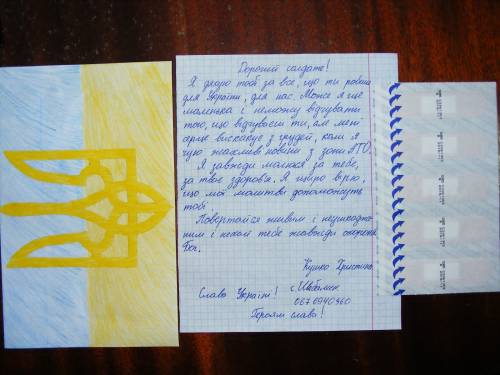 Дорогий солдате!
Я дякую тобі за все, що ти робиш
для України, для нас. Може я ще
маленька і не можу відчувати
того, що відчуваєш ти, але мені
серце вискакує з грудей, коли я
чую жахливі новини з зони АТО.
Я завжди молюся за тебе,
за твоє здоров'я. Я щиро вірю,
що мої молитви допоможуть
тобі.
Повертайся живим і неушкодже-
ним і нехай тебе завжди оберігає
Бог.
Христина
Слава Україні!
0676940360
Героям слава!